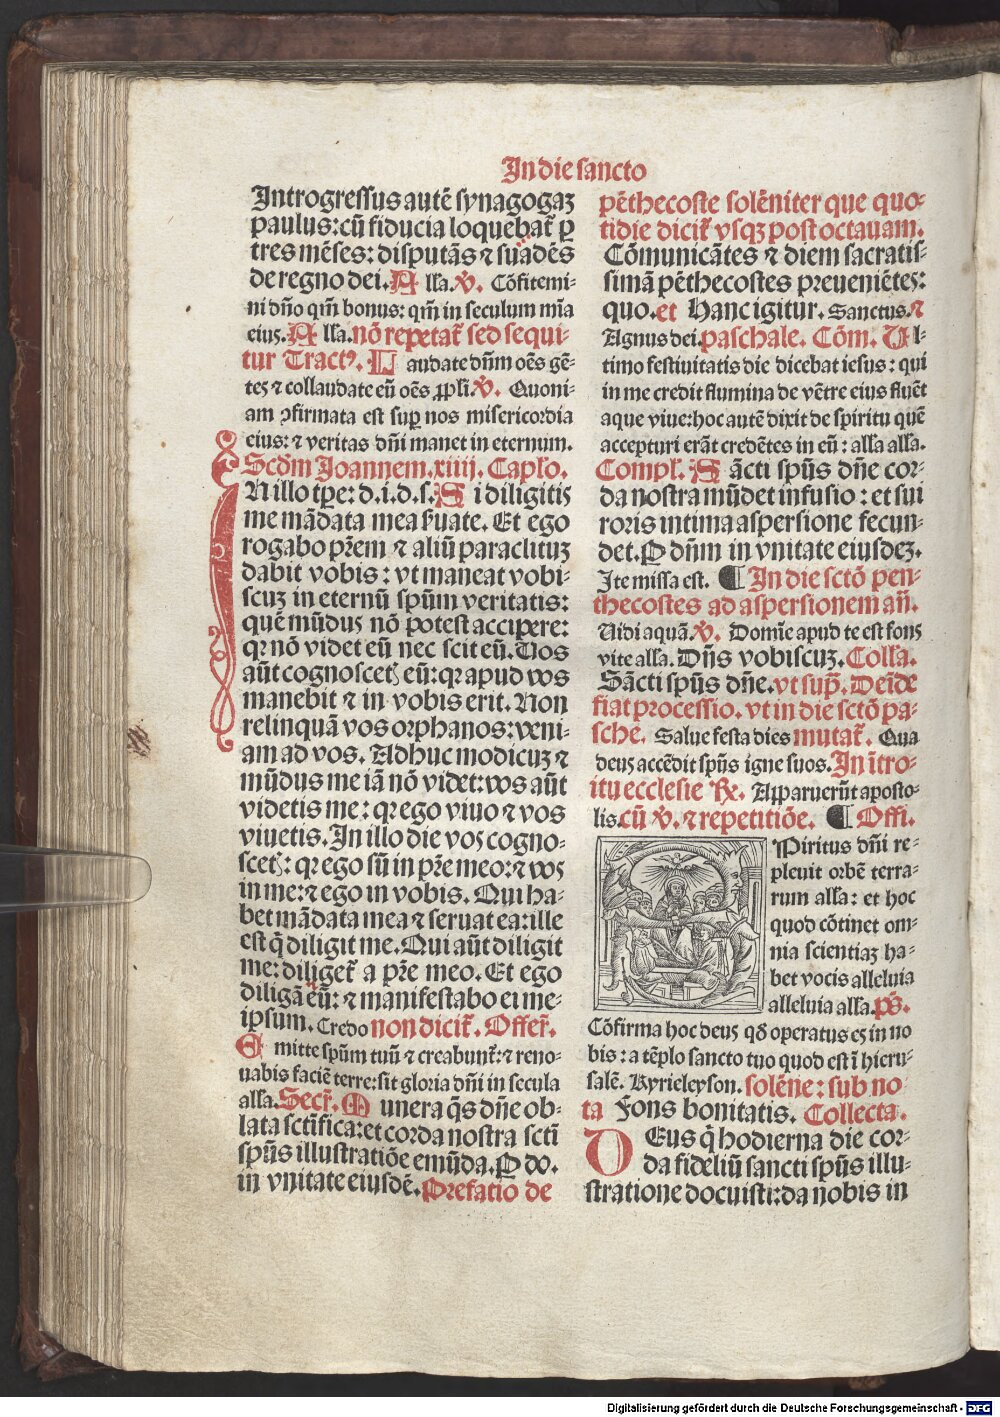 In die sancto
Introgressus autē synagogaʒ
paulus: cū fiducia loquebat̃ ꝑ
tres mēses: disputās ⁊ suadēs
de regno dei. A lla. ℣. Cōfitemi-
ni dño qm̄ bonus: qm̄ in seculum mīa
eius. A lla. nō repetat̃ sed sequi-
tur Tractꝰ. L audate dn̄m oēs gē-
tes ⁊ collaudate eū oēs ppl̄i. ℣. Quoni-
am ꝯfirmata est suꝑ nos misericordia
eius: ⁊ veritas dn̄i manet in eternum.
Scd̄m Joannem. xiiii. Caplo.
IN illo tp̄e: d. i. d. s. S i diligitis
me mādata mea ẜuate. Et ego
rogabo pr̄em ⁊ aliū paraclituʒ
dabit vobis: vt maneat vobi-
scuʒ in eternū spūm veritatis:
quē mūdus nō potest accipere:
qr̄ nō videt eū nec scit eū. Uos
aūt cognoscetꝭ eū: qr̄ apud vos
manebit ⁊ in vobis erit. Non
relinquā vos orphanos: veni-
am ad vos. Adhuc modicuʒ ⁊
mūdus me iā nō videt: vos aūt
videtis me: qr̄ ego viuo ⁊ vos
viuetis. In illo die vos cogno-
scetꝭ: qr̄ ego sū in pr̄e meo: ⁊ vos
in me: ⁊ ego in vobis. Qui ha-
bet mādata mea ⁊ seruat ea: ille
est q̄ diligit me. Qui aūt diligit
me: diliget̃ a pr̄e meo. Et ego
diligā eū: ⁊ manifestabo ei me-
ipsum. Credo non dicit̃. Offer̃.
E mitte spūm tuū ⁊ creabunt̃: ⁊ reno-
uabis faciē terre: sit gloria dn̄i in secula
alla. Secr̃. M unera q̄s dn̄e ob-
lata sctīfica: et corda nostra sctī
spūs illustratiōe emūda. P do.
in vnitate eiusdē. Prefatio de
pēthecoste solēniter que quo-
tidie dicit̃ vsqʒ post octauam.
Cōmunicātes ⁊ diem sacratis-
simā pēthecostes preueniētes:
quo. et Hanc igitur. Sanctus. ⁊
Agnus dei. paschale. Cōm. U l-
timo festiuitatis die dicebat iesus: qui
in me credit flumina de vētre eius fluēt
aque viue: hoc autē dixit de spiritu quē
accepturi erāt credētes in eū: alla alla.
Compl. S ācti spūs dn̄e cor-
da nostra mūdet infusio: et sui
roris intima aspersione fecun-
det. P dn̄m in vnitate eiusdeʒ.
Ite missa est. ¶ In die sctō pen-
thecostes ad aspersionem añ.
Uidi aquā. ℣. Domīe apud te est fons
vite alla. Dn̄s vobiscuʒ. Colla.
Sācti spūs dn̄e. vt sup̄. Deīde
fiat processio. vt in die sctō pa-
sche. Salue festa dies mutat̃. Qua
deus accēdit spūs igne suos. In ītro-
itu ecclesie ℞. Apparuerūt aposto-
lis. cū ℣. ⁊ repetitiōe. ¶ Offi.
SPiritus dn̄i re-
pleuit orbē terra-
rum alla: et hoc
quod cōtinet om-
nia scientiaʒ ha-
bet vocis alleluia
alleluia alla. ps̄.
Cōfirma hoc deus qd̄ operatus es in no
bis: a tēplo sancto tuo quod est ī hieru-
salē. Kyrieleyson. solēne: sub no
ta Fons bonitatis. Collecta.
DEus q̄ hodierna die cor-
da fideliū sancti spūs illu-
stratione docuisti: da nobis in
Digitalisierung gefördert durch die Deutsche Forschungsgemeinschaft - DFG